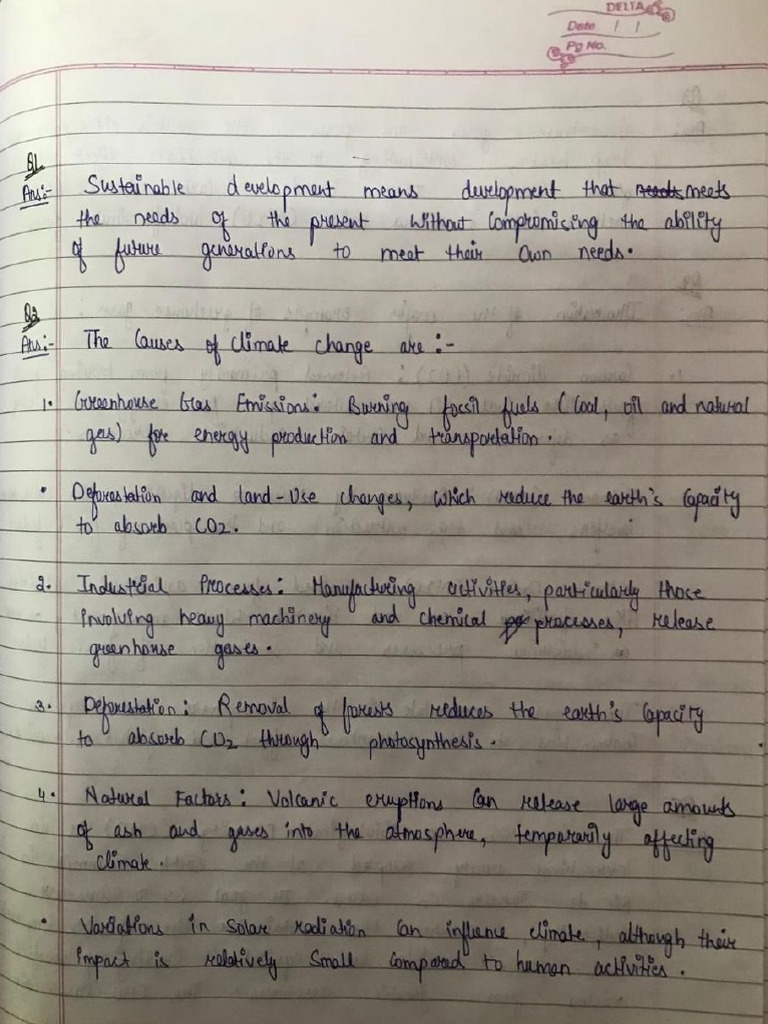 DELTA
Date / /
Pg No.
Q1
Ans:- Sustainable development means development that needs meets
the needs of the present without compromising the ability
of future generations to meet their own needs.
Q2
Ans:- The Causes of climate change are :-
1. Greenhouse Gas Emissions: Burning fossil fuels (coal, oil and natural
gas) for energy production and transportation.
• Deforestation and land-use changes, which reduce the earth's capacity
to absorb CO2.
2. Industrial Processes: Manufacturing activities, particularly those
involving heavy machinery and chemical processes, release
greenhouse gases.
3. Deforestation: Removal of forests reduces the earth's capacity
to absorb CO2 through photosynthesis.
4. Natural Factors: Volcanic eruptions can release large amounts
of ash and gases into the atmosphere, tempararily affecting
climate.
• Variations in solar radiation can influence climate, although their
impact is relatively small compared to human activities.